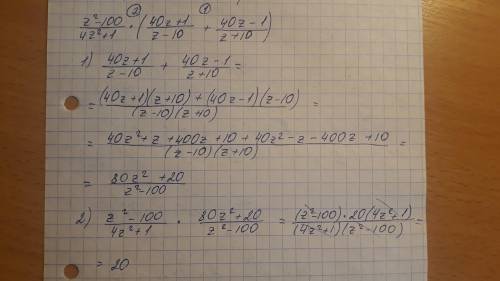 ② ①
(z²-100)/(4z²+1) · ((40z+1)/(z-10) + (40z-1)/(z+10))
1) (40z+1)/(z-10) + (40z-1)/(z+10) =
= ((40z+1)(z+10)+(40z-1)(z-10))/((z-10)(z+10)) =
= (40z²+z+400z+10+40z²-z-400z+10)/((z-10)(z+10)) =
= (80z²+20)/(z²-100)
2) (z²-100)/(4z²+1) · (80z²+20)/(z²-100) = ((z²-100)·20(4z²+1))/((4z²+1)(z²-100)) =
= 20